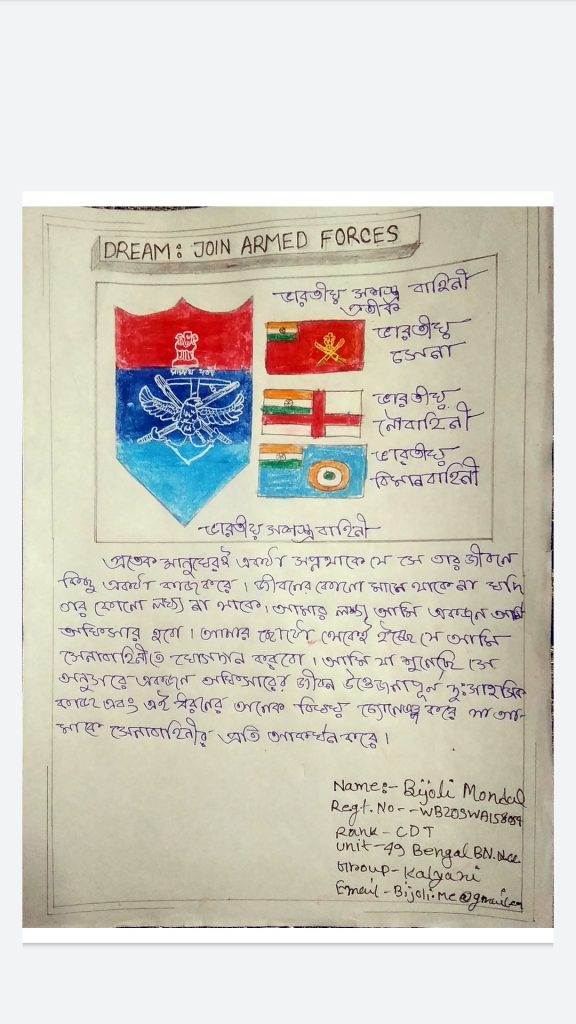 DREAM: JOIN ARMED FORCES
ভারতীয় সশস্ত্র বাহিনী
প্রতীক
ভারতীয়
সেনা
ভারতীয়
নৌবাহিনী
ভারতীয়
বিমানবাহিনী
ভারতীয় সশস্ত্র বাহিনী
প্রতেক মানুষেরই একটা সপ্ন থাকে যে সে তার জীবনে
কিছু একটা কাজ করে। জীবনের কোনো মানে থাকে না যদি
তার কোনো লক্ষ্য না থাকে। আমার লক্ষ্য আমি একজন আর্মি
অফিসার হবো। আমার ছোটো থেকেই ইচ্ছে যে আমি
সেনাবাহিনীতে যোগদান করবো। আমি যা শুনেছি সে
অনুসারে একজন অফিসারের জীবন উত্তেজনাপূর্ন দুঃসাহসিক
কাজ এবং এই ধরনের অনেক বিষয় চ্যালেঞ্জ করে যা আ-
মাকে সেনাবাহিনীর প্রতি আকর্ষন করে।
Name:- Bijoli Mondal
Regt. No--
Rank - CDT
Unit-49 Bengal BN.
Group-Kalyani
Email - Bijoli.mc@gmail.com